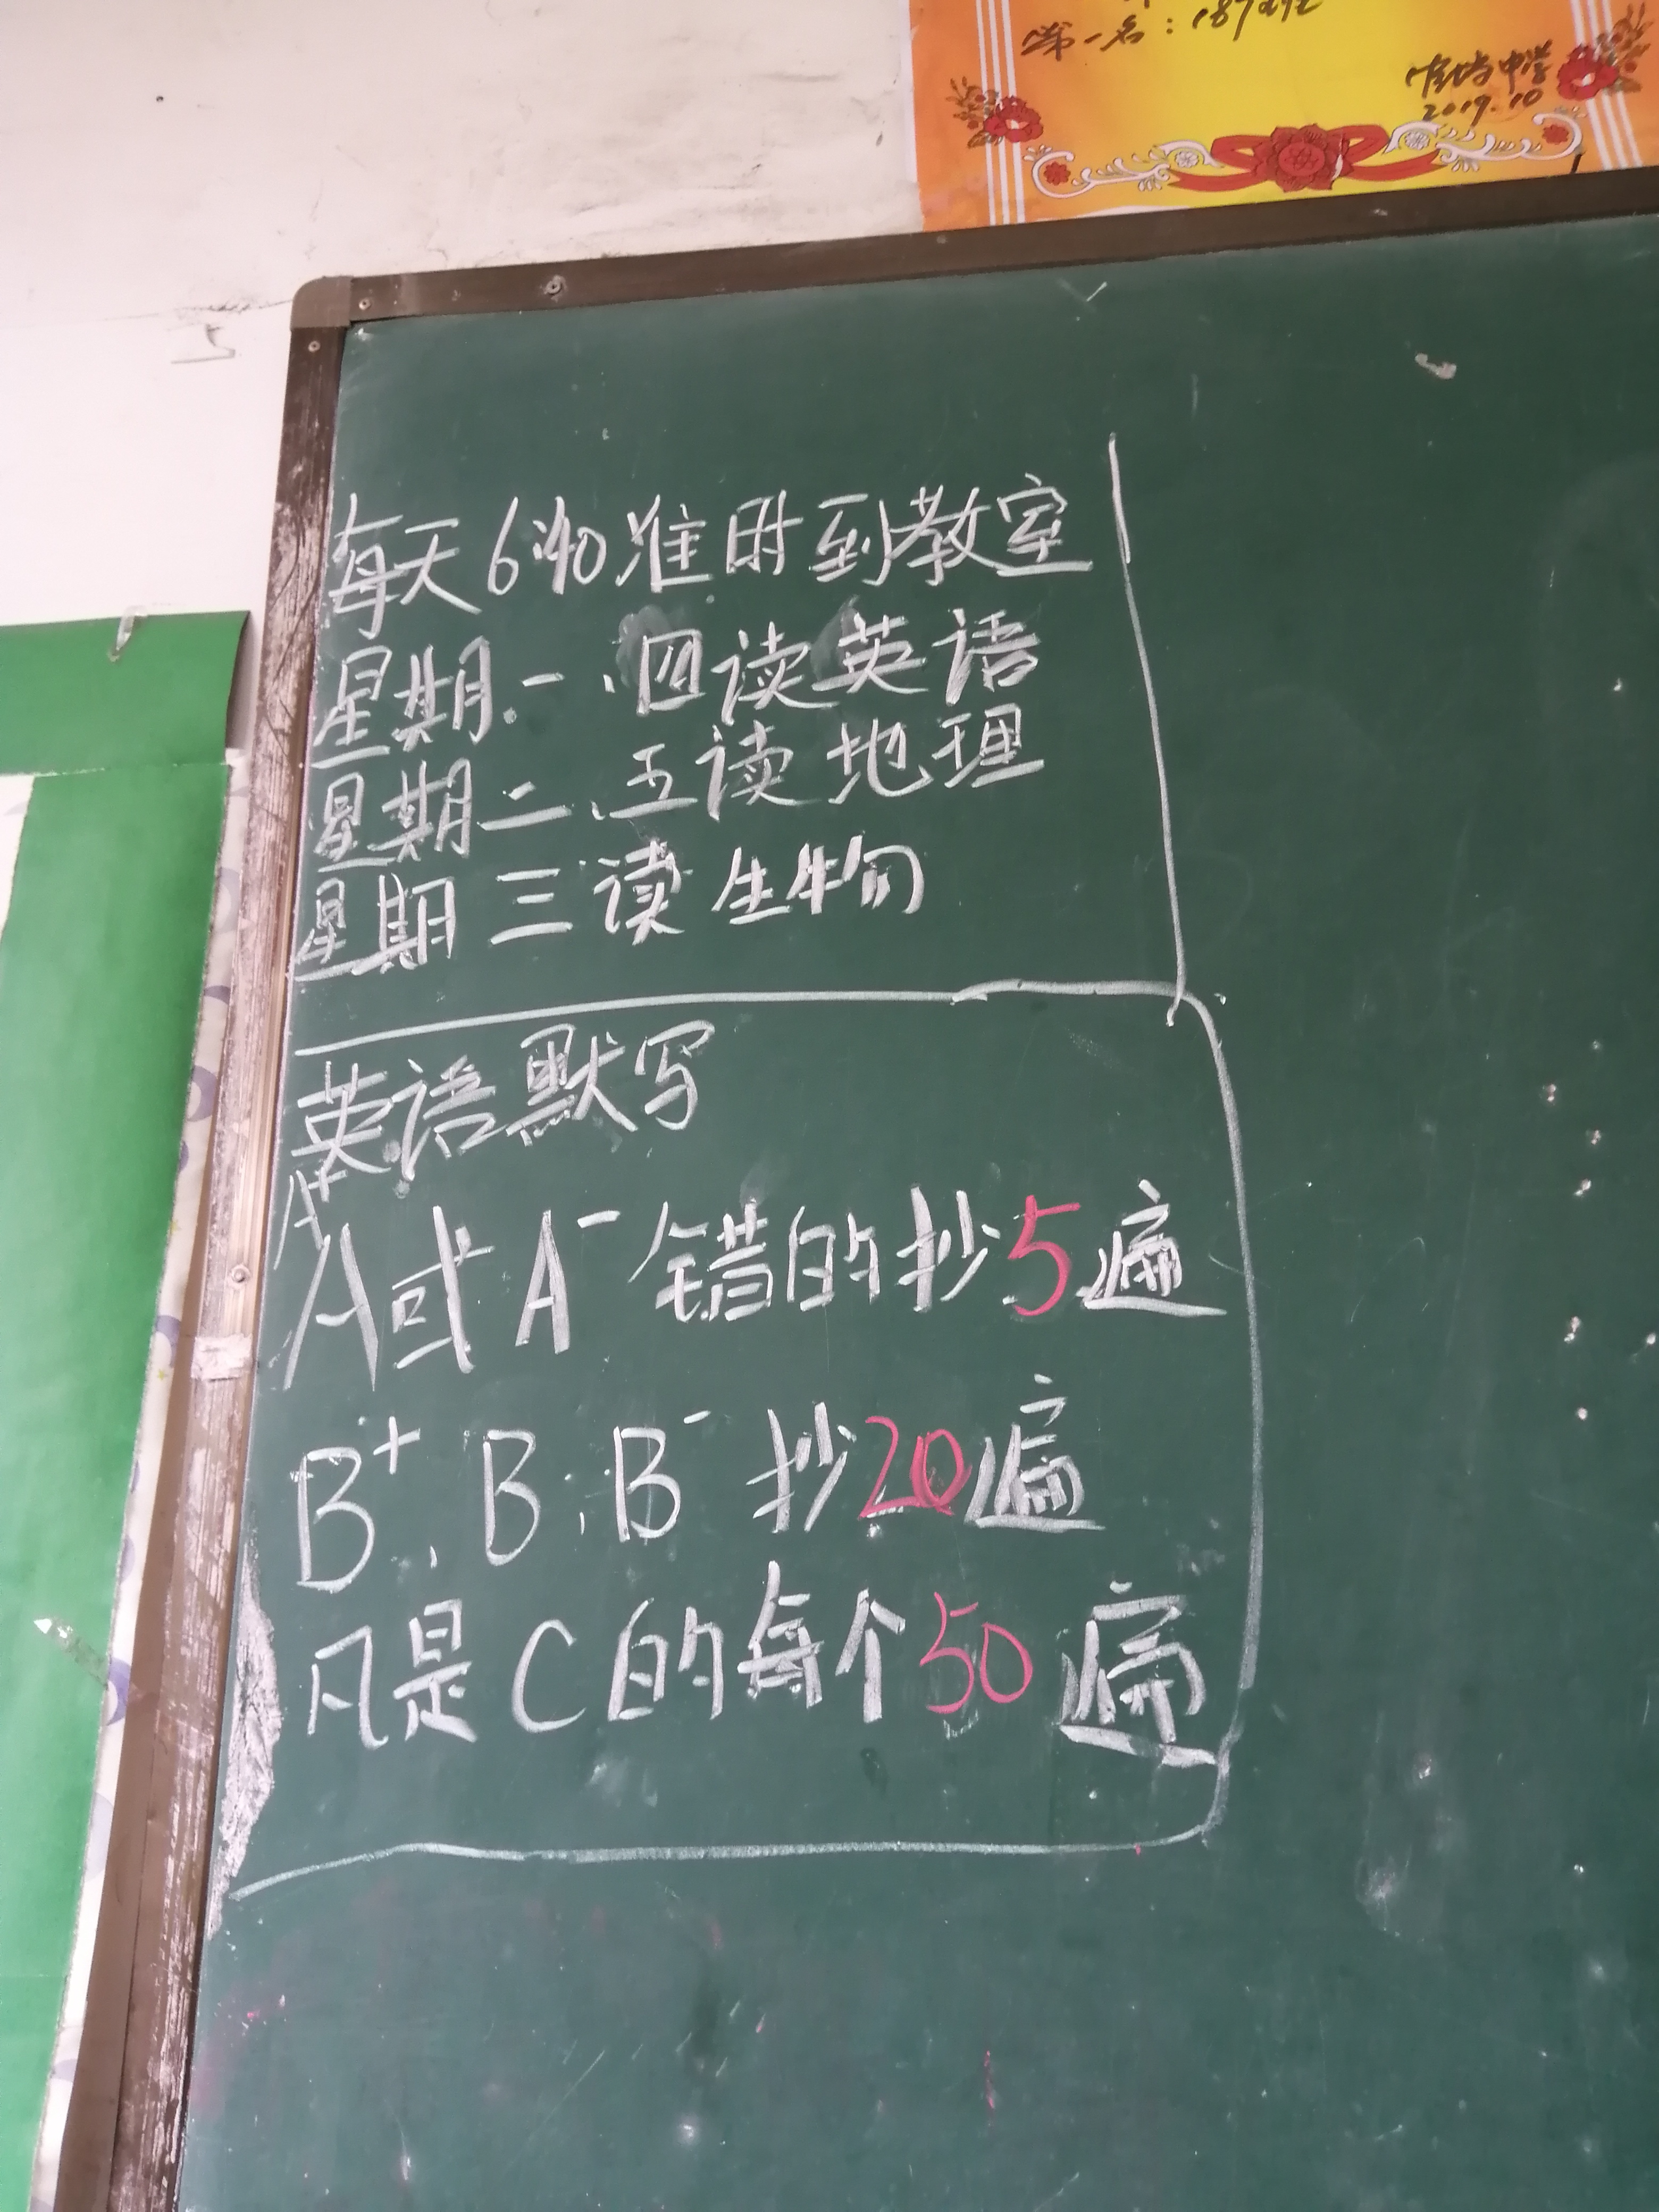 第一名：187班
中学
2019.10
每天6:40准时到教室
星期一、四读英语
星期二、五读地理
星期三读生物
英语默写
A+
A或A- 错的抄5遍
B+、B、B- 抄20遍
凡是C的每个50遍